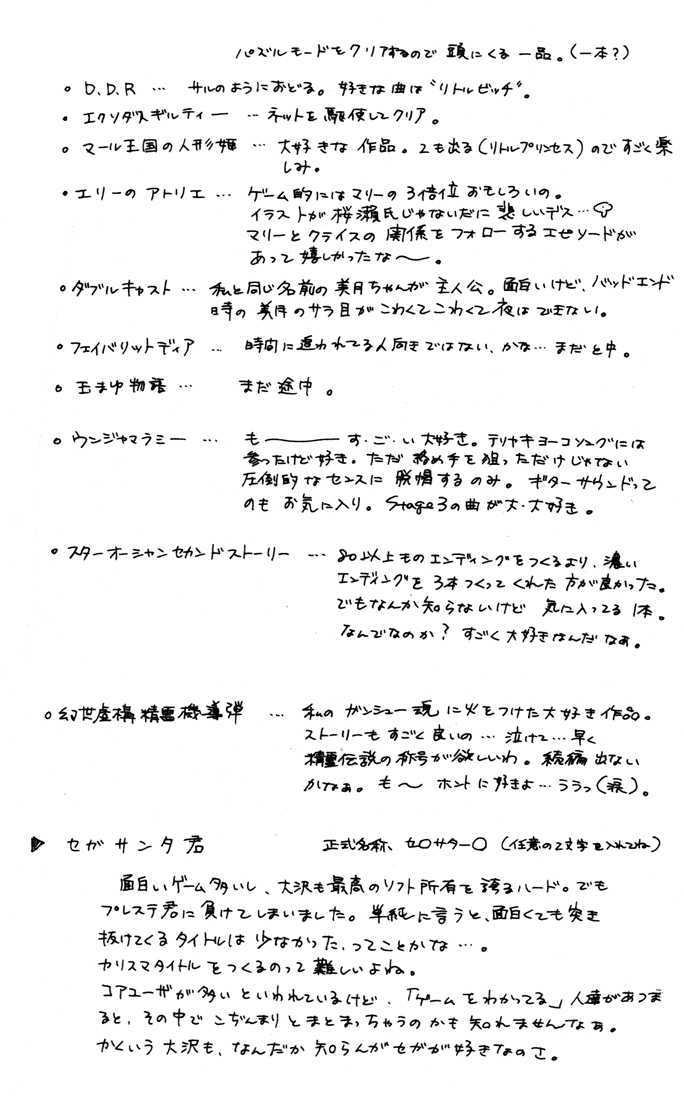 パズルモードをクリアするので頭にくる一品。(一本?)
○ D.D.R … サルのようにおどる。好きな曲は"リトルビッチ"。
○ エクソダスギルティー … ネットを駆使してクリア。
○ マール王国の人形姫 … 大好きな作品。2も出る(リトルプリンセス)のですごく楽
しみ。
○ エリーのアトリエ … ゲーム的にはマリーの3倍位おもしろいの。
イラストが桜瀬氏じゃないだに悲しいデス…
マリーとクライスの関係をフォローするエピソードが
あって嬉しかったな〜。
○ ダブルキャスト … 私と同じ名前の美月ちゃんが主人公。面白いけど、バッドエンド
時の美月のサラ目がこわくてこわくて夜はできない。
○ フェイバリットディア … 時間に追われてる人向きではない、かな… まだと中。
○ 玉まゆ物語 … まだ途中。
○ ウンジャマラミー … も―――す・ご・い大好き。テリヤキヨーコソングには
参ったけど好き。ただ攻め手を狙っただけじゃない
圧倒的なセンスに脱帽するのみ。ギターサウンドって
のもお気に入り。Stage3の曲が大・大好き。
○ スターオーシャンセカンドストーリー … 80以上ものエンディングをつくるより、濃い
エンディングを3本つくってくれた方が良かった。
でもなんか知らないけど気に入ってる1本。
なんでなのか?すごく大好きなんだなぁ。
○ 幻世虚構精霊機導弾 … 私のガンシュー魂に火をつけた大好き作品。
ストーリーもすごく良いの… 泣けて… 早く
精霊伝説の称号が欲しいわ。続編出ない
かなぁ。も〜ホントに好きよ… ううっ(涙)。
▶ セガサンタ君 正式名称、セ○サター○(任意の2文字を入れてね)
面白いゲーム多いし、大沢も最高のソフト所有を誇るハード。でも
プレステ君に負けてしまいました。単純に言うと、面白くても突き
抜けてくるタイトルは少なかった、ってことかな…。
カリスマタイトルをつくるのって難しいよね。
コアユーザが多いといわれているけど、「ゲームをわかってる」人達があつま
ると、その中でこぢんまりとまとまっちゃうのかも知れませんなぁ。
かくいう大沢も、なんだか知らんがセガが好きなのさ。